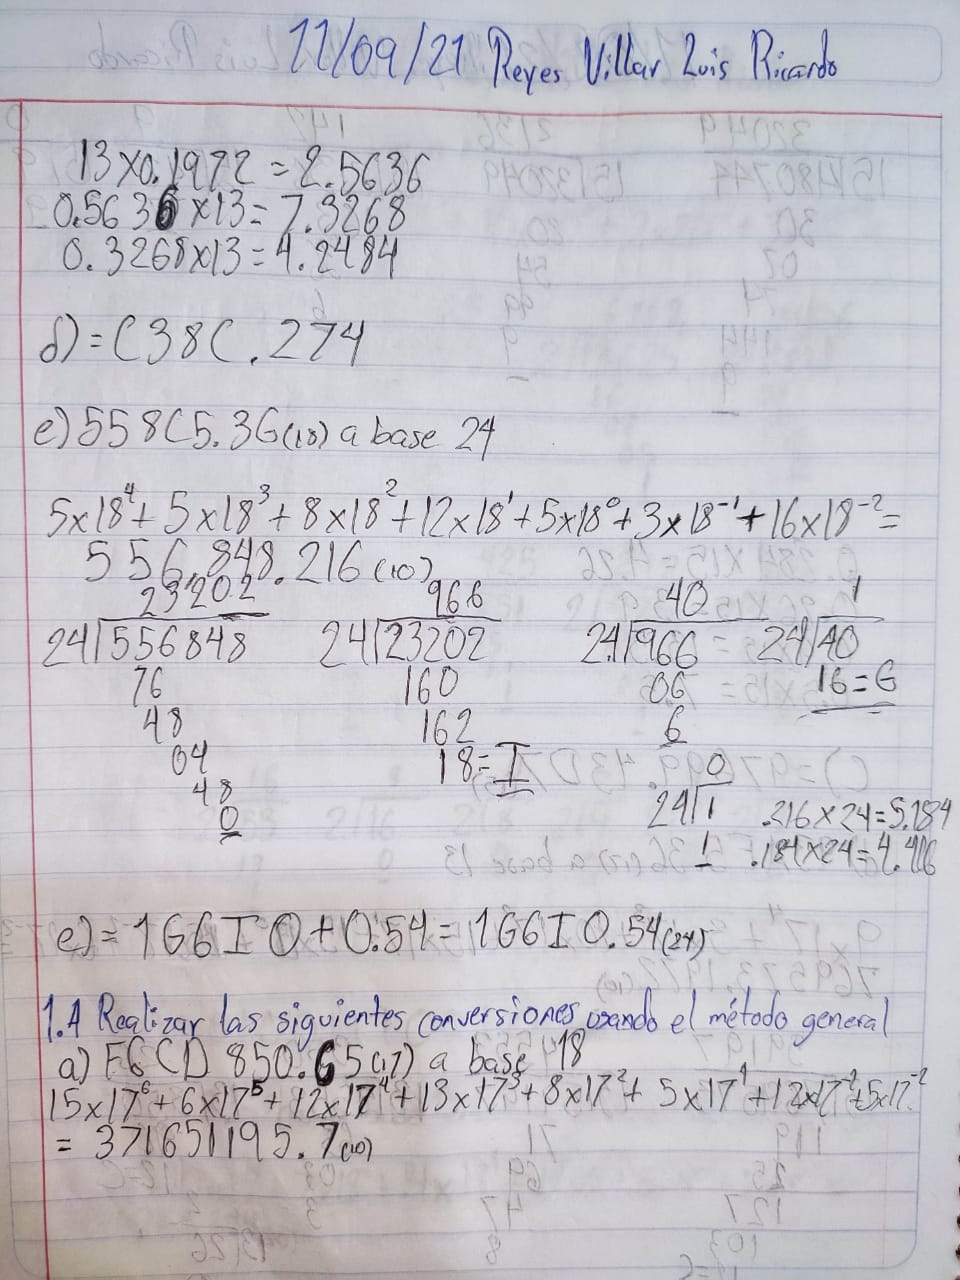 11/09/21 Reyes Villar Luis Ricardo
13x0.1972 = 2.5636
0.5636x13= 7.3268
0.3268x13=4.2484
d)=C38C.274
e)558C5.3G(18) a base 24
5x18⁴+5x18³+8x18²+12x18¹+5x18⁰+3x18⁻¹+16x18⁻²=
556,848.216(10)
23202 966 40 1
24/556848 24/23202 24/966 = 24/40
76 160 06 16=G
48 162 6
04 18=I 0
48 24/1 .216x24=5.184
0 1 .184x24=4.416
e)=1G6I0+0.54=1G6I0.54(24)
1.4 Realizar las siguientes conversiones usando el método general
a) F6CD850.C5(17) a base 18
15x17⁶+6x17⁵+12x17⁴+13x17³+8x17²+5x17¹+12x17⁻¹+5x17⁻²
=371651195.7(10)